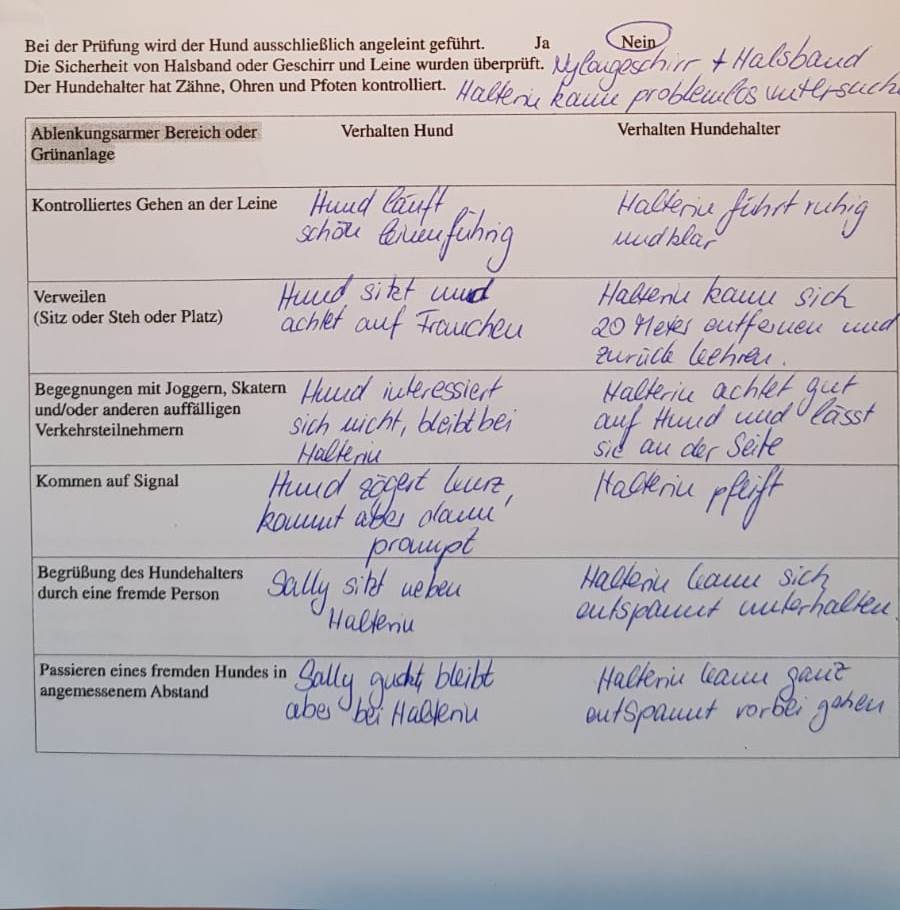 Bei der Prüfung wird der Hund ausschließlich angeleint geführt. Ja Nein
Die Sicherheit von Halsband oder Geschirr und Leine wurden überprüft. Nylongeschirr + Halsband
Der Hundehalter hat Zähne, Ohren und Pfoten kontrolliert. Halterin kann problemlos untersuch
Ablenkungsarmer Bereich oder Verhalten Hund Verhalten Hundehalter
Grünanlage
Kontrolliertes Gehen an der Leine
Hund läuft
schön leinenführig
Halterin führt ruhig
und klar
Verweilen
(Sitz oder Steh oder Platz)
Hund sitzt und
achtet auf Frauchen
Halterin kann sich
20 Meter entfernen und
zurück kehren.
Begegnungen mit Joggern, Skatern
und/oder anderen auffälligen
Verkehrsteilnehmern
Hund interessiert
sich nicht, bleibt bei
Halterin
Halterin achtet gut
auf Hund und lässt
sie an der Seite
Kommen auf Signal
Hund zögert kurz,
kommt aber dann
prompt
Halterin pfeift
Begrüßung des Hundehalters
durch eine fremde Person
Sally sitzt neben
Halterin
Halterin kann sich
entspannt unterhalten.
Passieren eines fremden Hundes in
angemessenem Abstand
Sally guckt, bleibt
aber bei Halterin
Halterin kann ganz
entspannt vorbei gehen